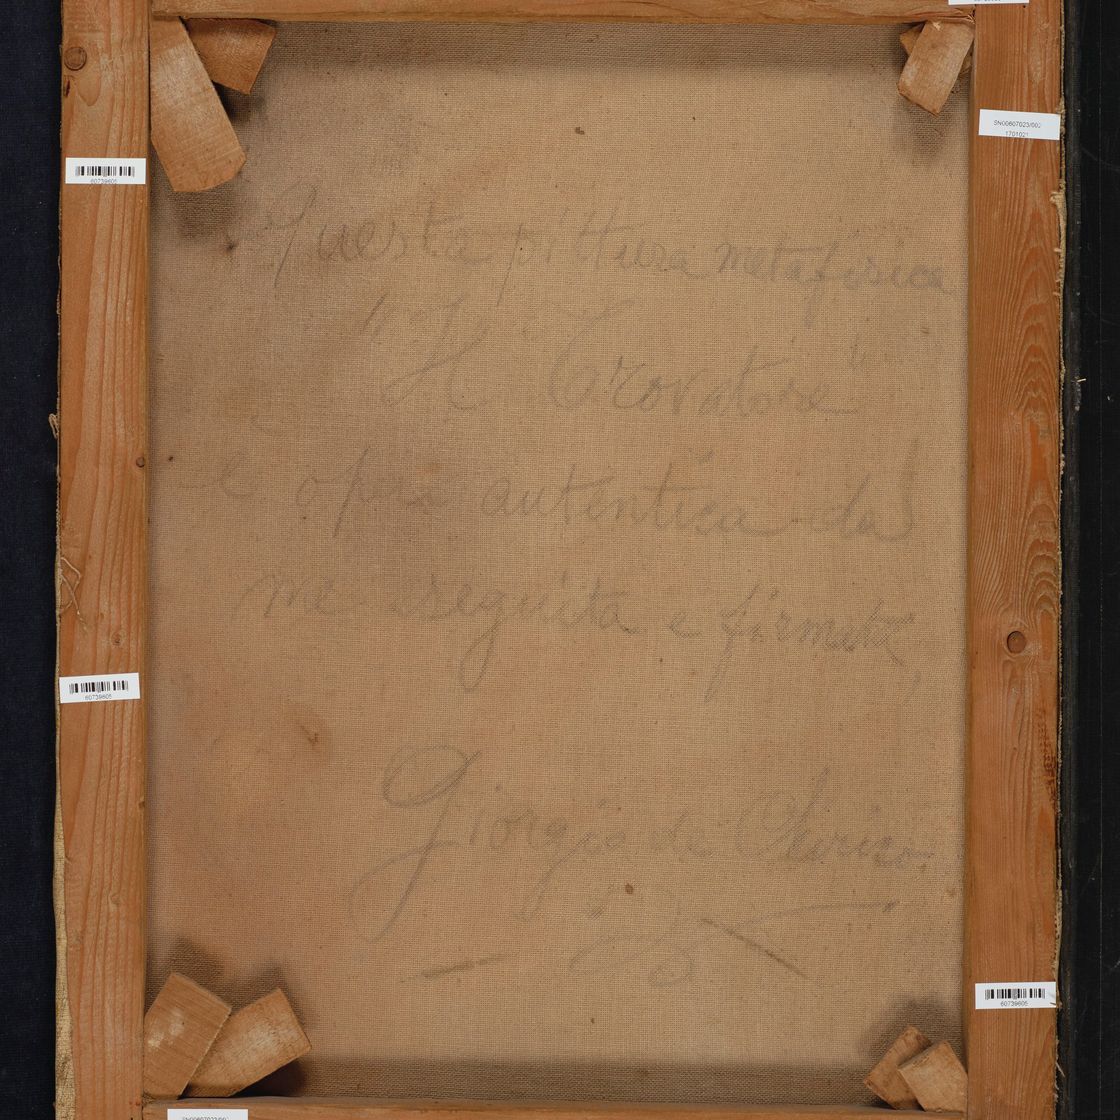 SN00607023/002
1701021
60739605
Questa pittura metafisica
"Il Trovatore"
e opera autentica da
me eseguita e firmata,
Giorgio de Chirico
60739605
60739605
SN00607023/002